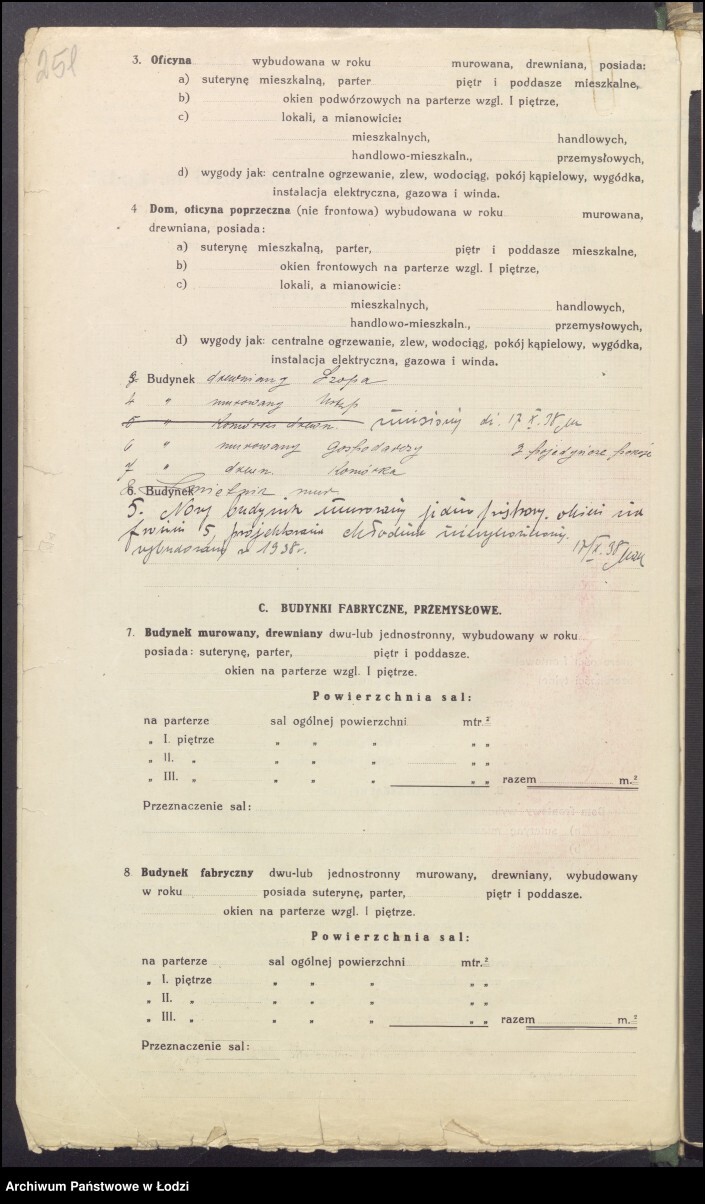 251
3. Oficyna wybudowana w roku murowana, drewniana, posiada:
a) suterynę mieszkalną, parter piętr i poddasze mieszkalne,
b) okien podwórzowych na parterze wzgl. I piętrze,
c) lokali, a mianowicie:
mieszkalnych, handlowych,
handlowo-mieszkaln., przemysłowych,
d) wygody jak: centralne ogrzewanie, zlew, wodociąg, pokój kąpielowy, wygódka,
instalacja elektryczna, gazowa i winda.
4 Dom, oficyna poprzeczna (nie frontowa) wybudowana w roku murowana,
drewniana, posiada:
a) suterynę mieszkalną, parter, piętr i poddasze mieszkalne,
b) okien frontowych na parterze wzgl. I piętrze,
c) lokali, a mianowicie:
mieszkalnych, handlowych,
handlowo-mieszkaln., przemysłowych,
d) wygody jak: centralne ogrzewanie, zlew, wodociąg, pokój kąpielowy, wygódka,
instalacja elektryczna, gazowa i winda.
3. Budynek drewniany Szopa
4 " murowany Ustęp
5 " Komórki drewn. zniesiony dn. 17 X. 38
6 " murowany Gospodarczy
7 " drewn. Komórka
6. Budynek Śmietnik mur.
5. Nowy budynek murowany jedno piętrowy. okien na
froncie 5,
wybudowany w 1938 r. 17/X. 38
C. BUDYNKI FABRYCZNE, PRZEMYSŁOWE.
7. Budynek murowany, drewniany dwu-lub jednostronny, wybudowany w roku
posiada: suterynę, parter, piętr i poddasze.
okien na parterze wzgl. I piętrze.
Powierzchnia sal:
na parterze sal ogólnej powierzchni mtr.²
" I. piętrze " " " " "
" II. " " " " " "
" III. " " " " " " razem m.²
Przeznaczenie sal:
8 Budynek fabryczny dwu-lub jednostronny murowany, drewniany, wybudowany
w roku posiada suterynę, parter, piętr i poddasze.
okien na parterze wzgl. I piętrze.
Powierzchnia sal:
na parterze sal ogólnej powierzchni mtr.²
" I. piętrze " " " " "
" II. " " " " " "
" III. " " " " " " razem m.²
Przeznaczenie sal:
Archiwum Państwowe w Łodzi